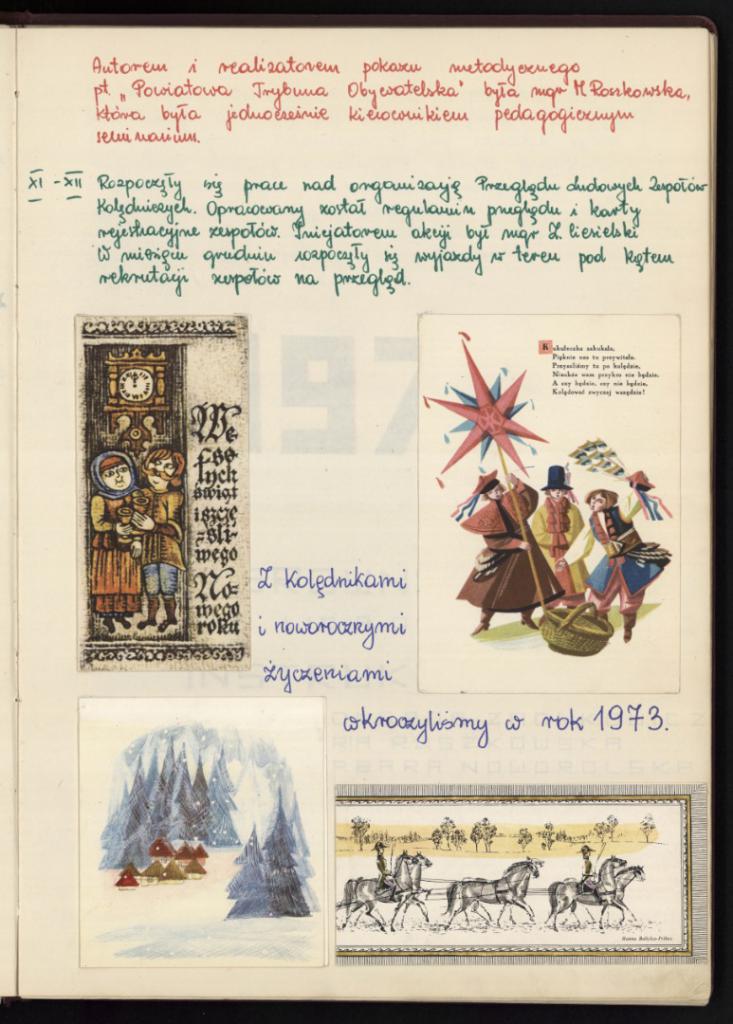 Autorem i realizatorem pokazu metodycznego
pt. „Powiatowa Trybuna Obywatelska" była mgr M. Roszkowska,
która była jednocześnie kierownikiem pedagogicznym
seminarium.
XI - XII Rozpoczęły się prace nad organizacją Przeglądu Ludowych Zespołów
Kolędniczych. Opracowany został regulamin przeglądu i karty
rejestracyjne zespołów. Inicjatorem akcji był mgr Z. Ciesielski
W miesiącu grudniu rozpoczęły się wyjazdy w teren pod kątem
rekrutacji zespołów na przegląd.
We-
sołych
świąt
i szczę-
śli-
wego
No-
wego
roku
Kukułeczka zakukała,
Pięknie nas tu przywitała.
Przyszliśmy tu po kolędzie,
Niechże wam przykro nie będzie.
A czy będzie, czy nie będzie,
Kolędować zwyczaj wszędzie!
Z Kolędnikami
i noworocznymi
życzeniami
wkroczyliśmy w rok 1973.